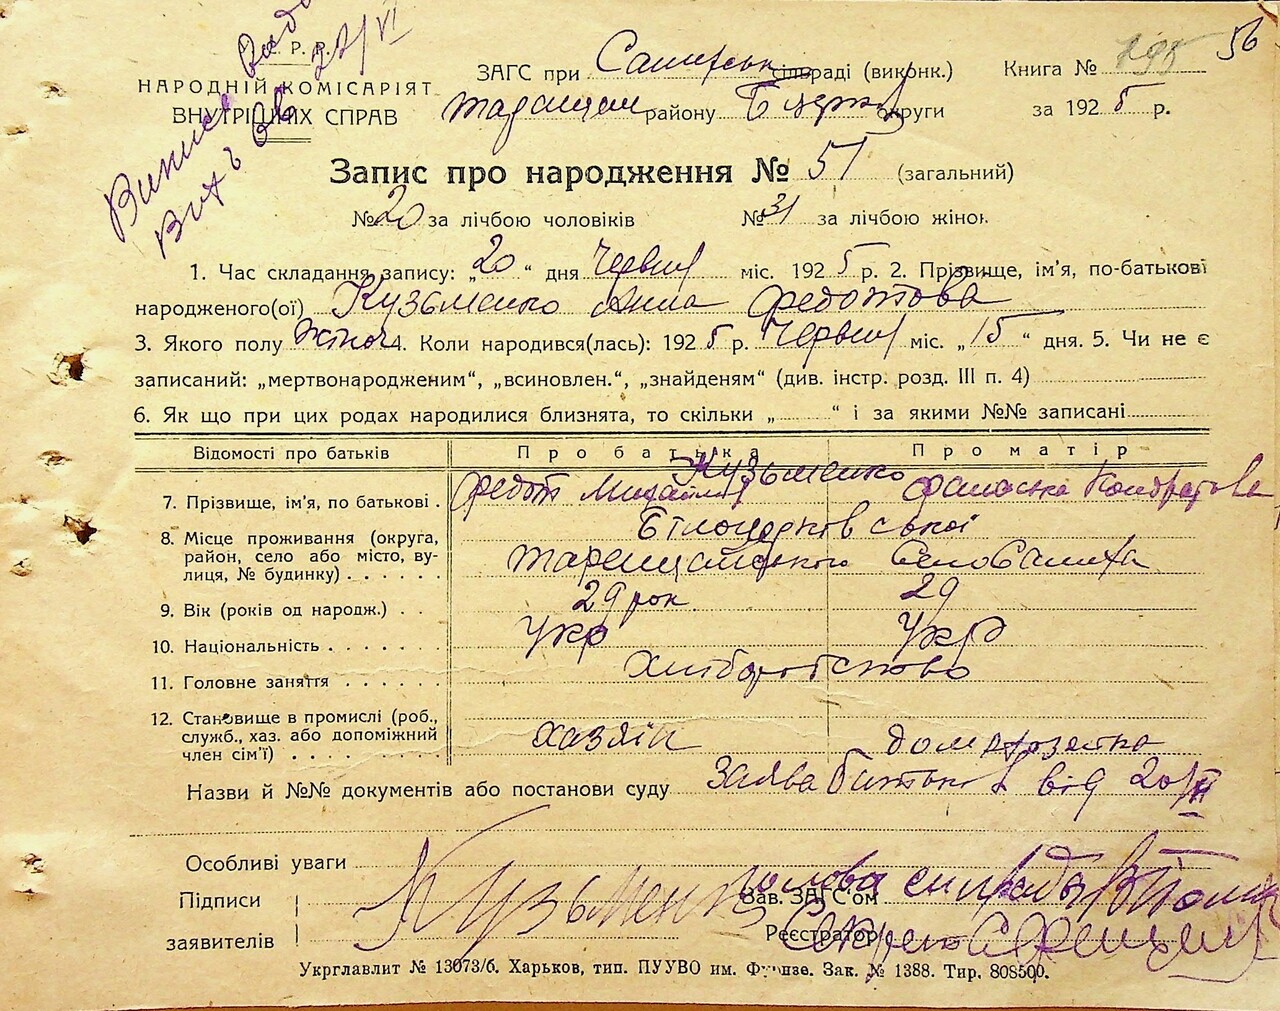 У. С. Р. Р.
НАРОДНІЙ КОМІСАРІЯТ
ВНУТРІШНІХ СПРАВ
56
ЗАГС при сільраді (виконк.)
Книга №
району Б Церків округи
за 1925 р.
Запис про народження № 51 (загальний)
№ 20 за лічбою чоловіків № 31 за лічбою жінок
1. Час складання запису: „20" дня Червня міс. 1925 р. 2. Прізвище, ім'я, по-батькові
народженого(ої) Кузьменко Анна Федотова
3. Якого полу жіноч 4. Коли народився(лась): 1925 р. Червня міс. „15" дня. 5. Чи не є
записаний: „мертвонародженим", „всиновлен.", „знайденям" (див. інстр. розд. III п. 4)
6. Як що при цих родах народилися близнята, то скільки „ " і за якими №№ записані
Відомості про батьків Про батька Про матір
Кузьменко
7. Прізвище, ім'я, по батькові . Федот Кондратова
8. Місце проживання (округа,
район, село або місто, ву-
лиця, № будинку) . . . . . .
Білоцерковської
Таращанського
9. Вік (років од народж.) . . 29 рок 29
10. Національність . . . . . . . Укр Укр
11. Головне заняття . . . . . . Хліборобство
12. Становище в промислі (роб.,
служб., хаз. або допоміжний
член сім'ї) . . . . . . . . .
хазяїн
Назви й №№ документів або постанови суду Заява батька від 20/VI
Особливі уваги
Підписи
заявителів
Кузьменко
Зав. ЗАГС'ом голова сільради
Реєстратор
Укрглавлит № 13073/б. Харьков, тип. ПУУВО им. Фрунзе. Зак. № 1388. Тир. 808500.